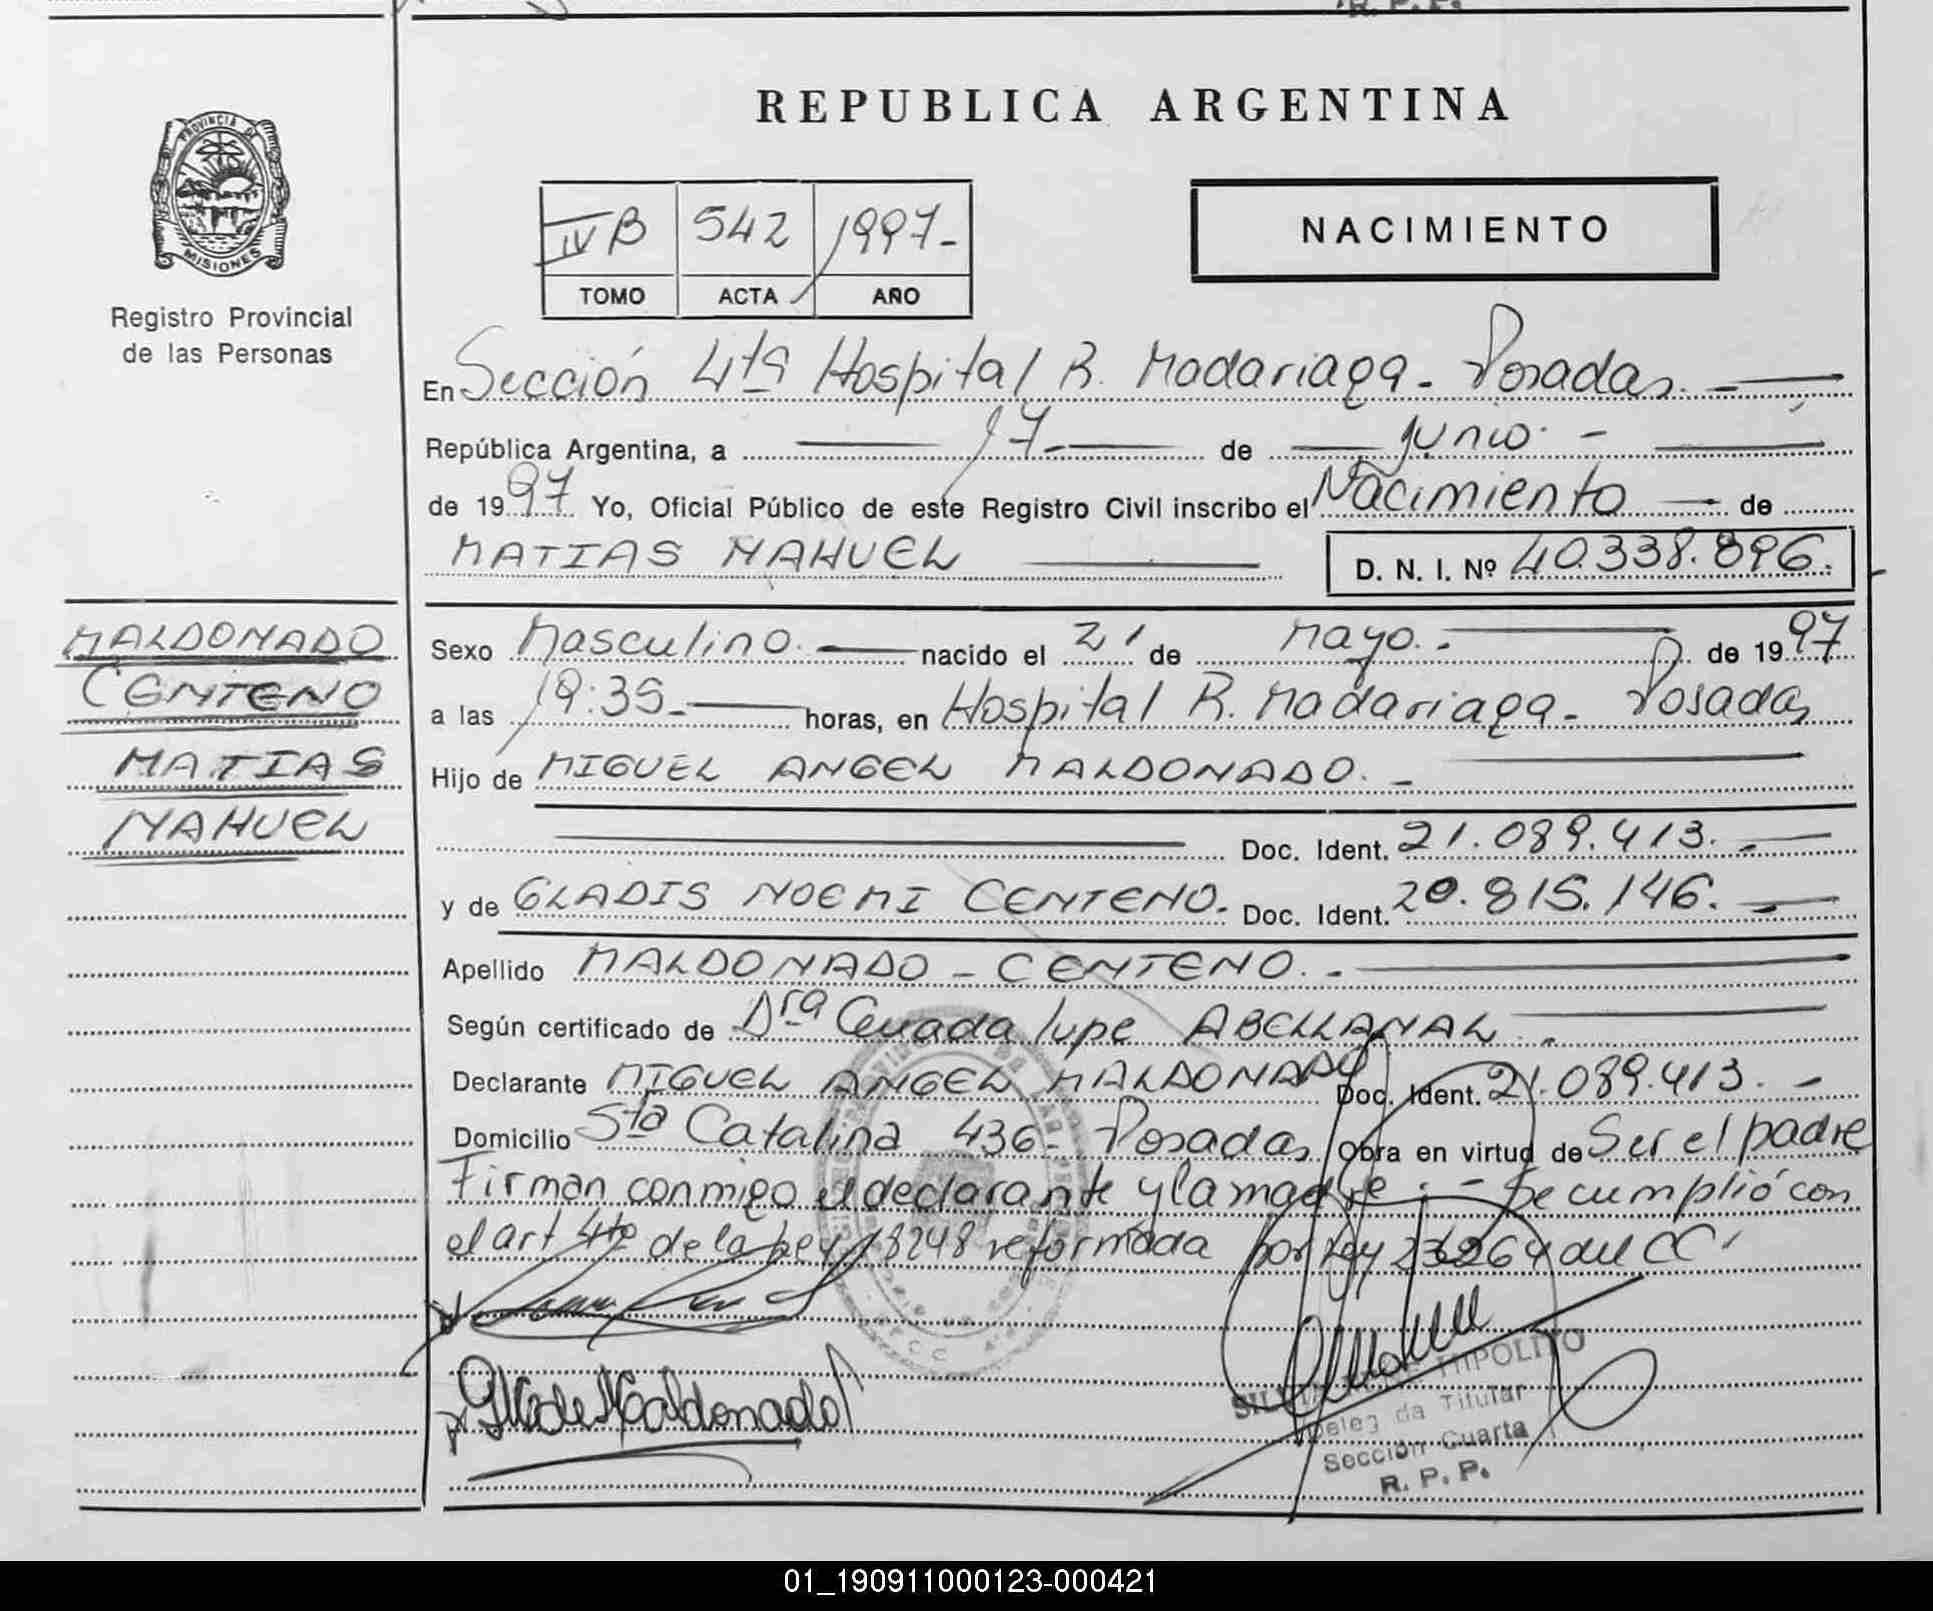 R. P. P.
REPUBLICA ARGENTINA
PROVINCIA DE
MISIONES
Registro Provincial
de las Personas
IV B 542 1997-
TOMO ACTA AÑO
NACIMIENTO
En Sección 4ta Hospital R. Madariaga - Posadas. -
República Argentina, a 17- de junio. -
de 1997 Yo, Oficial Público de este Registro Civil inscribo el Nacimiento de
MATIAS NAHUEL
D. N. I. Nº 40.338.896.
MALDONADO
CENTENO
MATIAS
NAHUEL
Sexo Masculino. nacido el 21 de Mayo. - de 1997
a las 19:35- horas, en Hospital R. Madariaga - Posadas
Hijo de MIGUEL ANGEL MALDONADO. -
Doc. Ident. 21.089.413. -
y de GLADIS NOEMI CENTENO. Doc. Ident. 20.815.146. -
Apellido MALDONADO - CENTENO. -
Según certificado de Dra Guadalupe ABELLANAL. -
Declarante MIGUEL ANGEL MALDONADO Doc. Ident. 21.089.413. -
Domicilio Sta Catalina 436- Posadas Obra en virtud de Ser el padre
Firman conmigo el declarante y la madre. - Se cumplió con
el art 4to de la Ley 18248 reformada por Ley 23264 del CC.
Maldonado
HIPOLITO
Titular
Sección Cuarta
R. P. P.
01_190911000123-000421